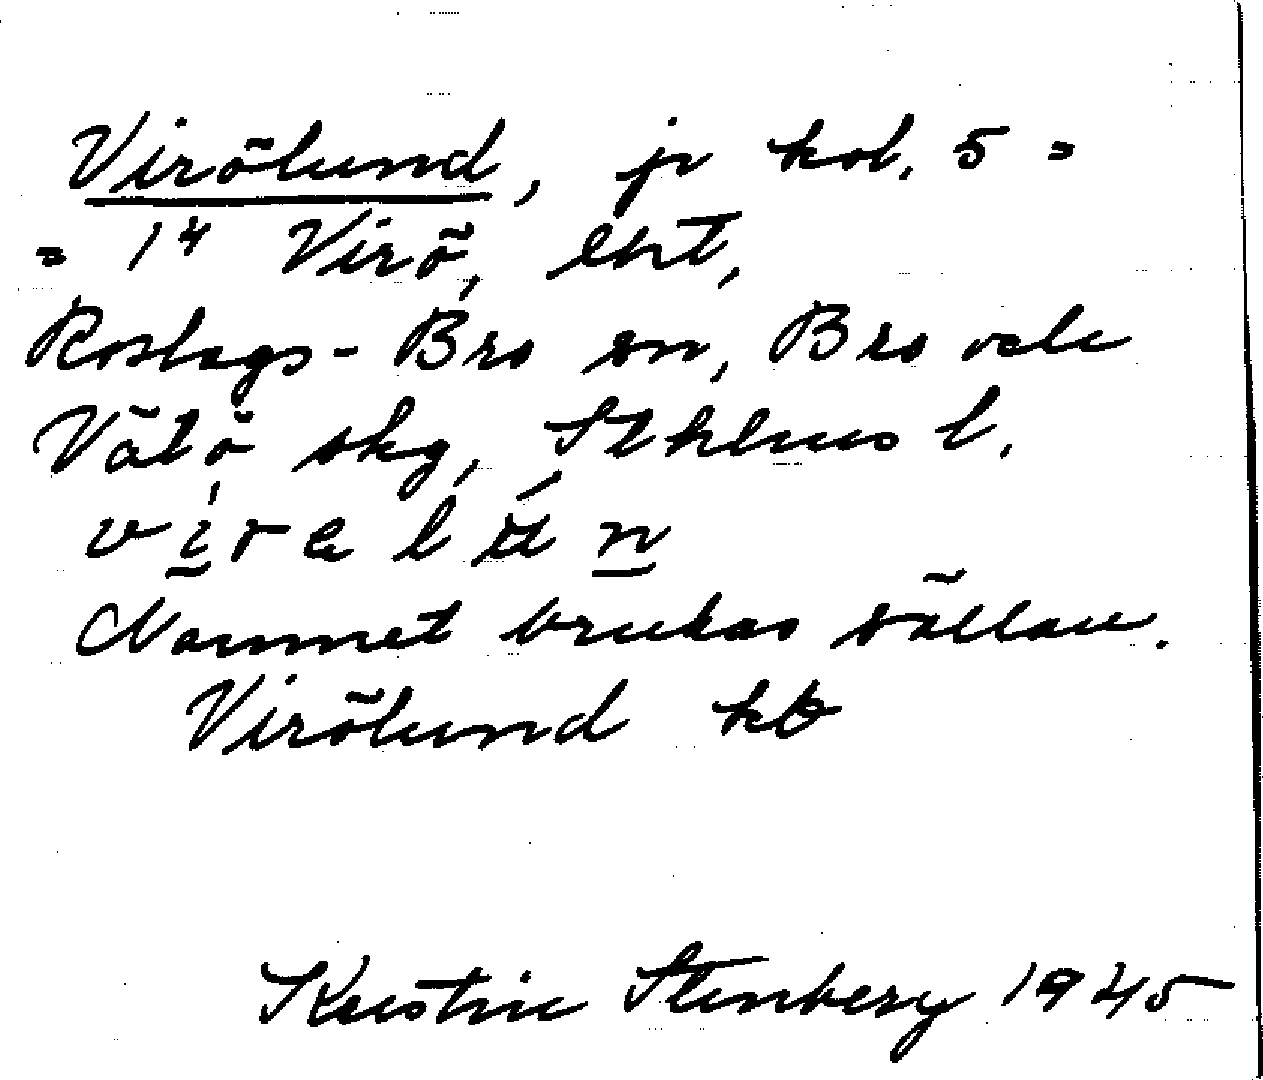 Virölund, jr kol. 5 =
= 1⁴ Virö, lht,
Roslags-Bro sn, Bro och
Vätö skg, Sthlms l.
virelún
Namnet brukas sällan.
Virölund kb
Kerstin Stenberg 1945